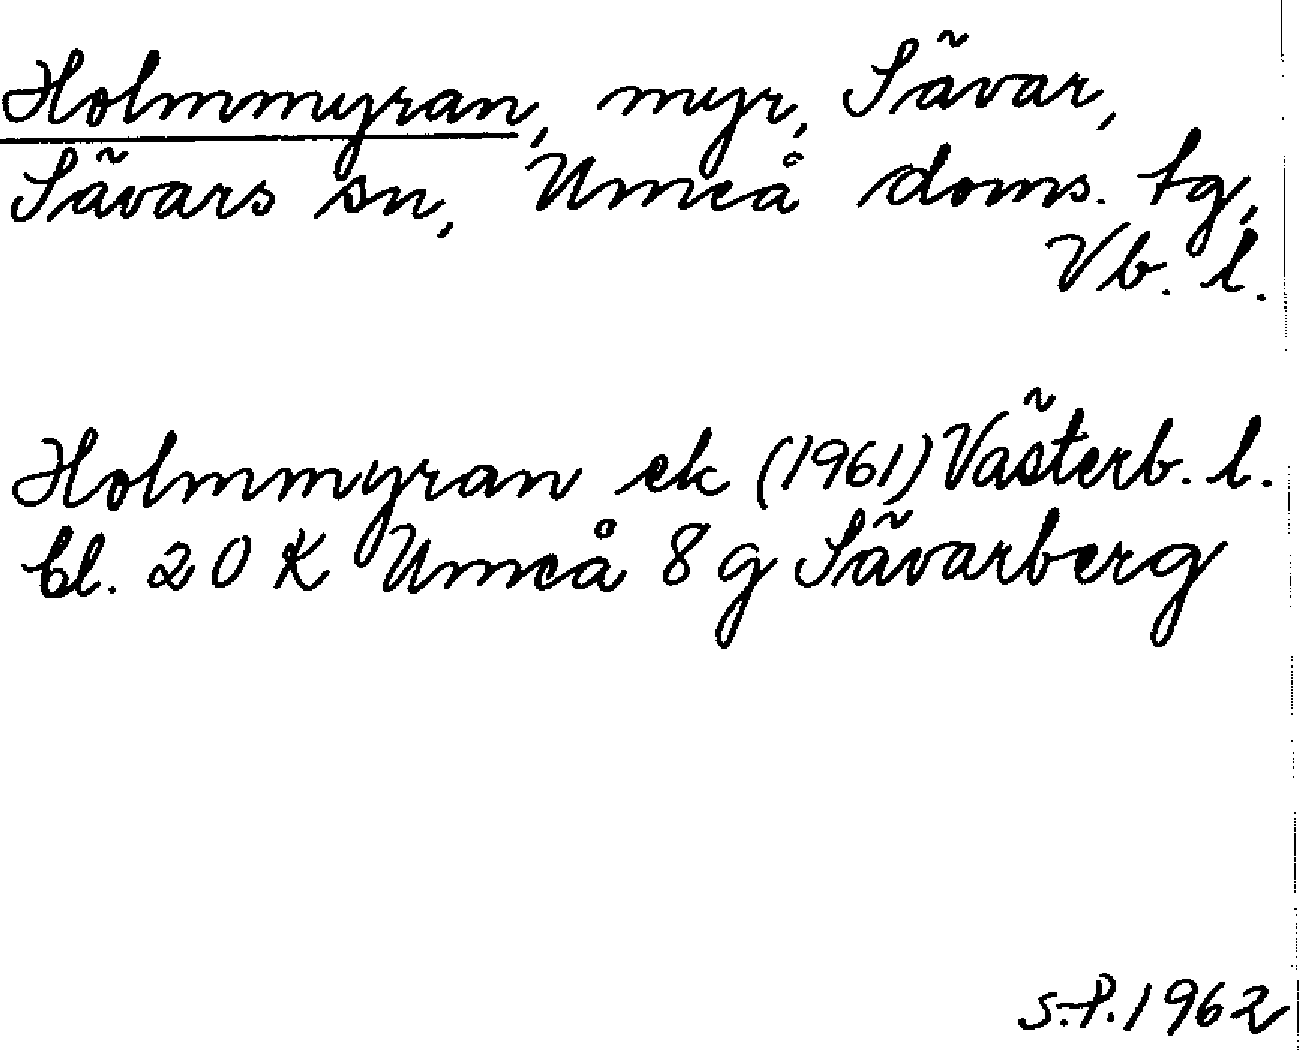 Holmmyran, myr, Sävar,
Sävars sn, Umeå doms. tg,
Vb. l.
Holmmyran ek (1961) Västerb. l.
bl. 20 K Umeå 8 g Sävarberg
S.P. 1962